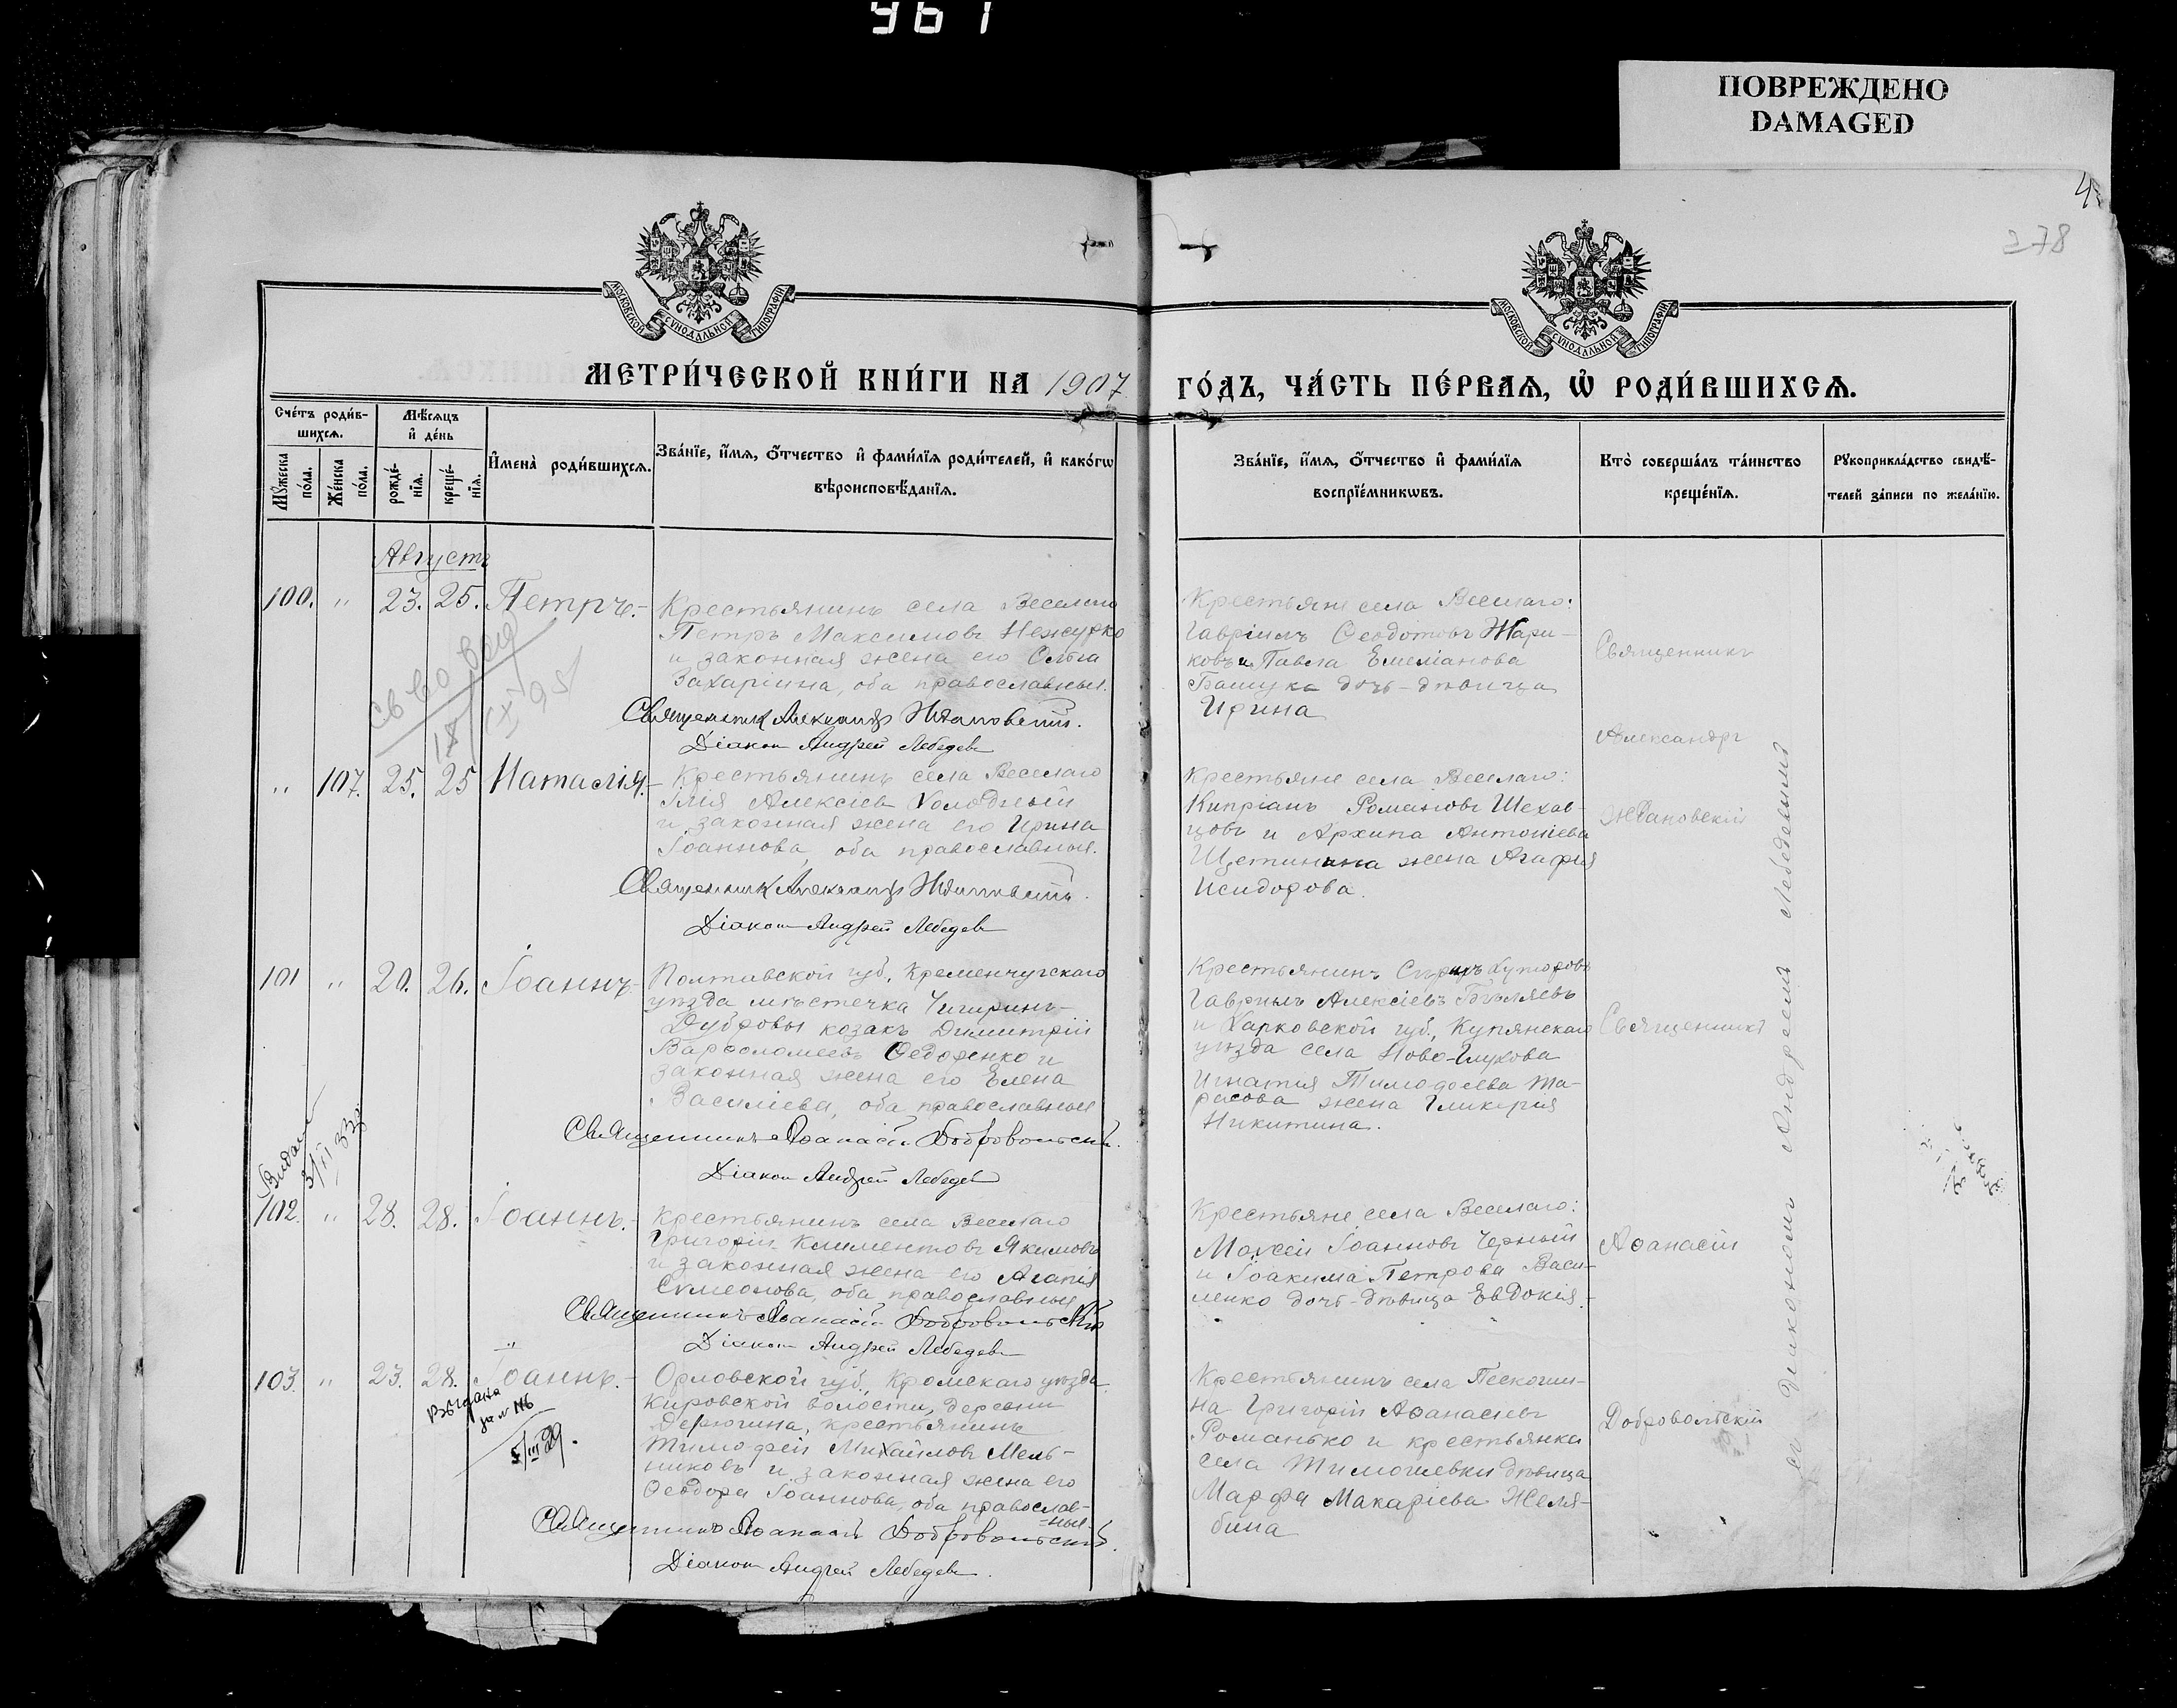 961
ПОВРЕЖДЕНО
DAMAGED
278
МОСКОВСКОЙ СѴНОДАЛЬНОЙ ТИПОГРАФІИ
МОСКОВСКОЙ СѴНОДАЛЬНОЙ ТИПОГРАФІИ
МЕТРИ́ЧЕСКОЙ КНИ́ГИ НА 1907 ГО́ДЪ, ЧА́СТЬ ПЕ́РВАѦ, Ѡ҆ РОДИ́ВШИХСѦ.
Сче́тъ роди́в-
шихсѧ.
Мꙋ́жеска по́ла.
Же́нска по́ла.
Мѣ́сѧцъ
и҆ де́нь
рожде́-
нїѧ.
креще́-
нїѧ.
И҆мена̀ роди́вшихсѧ.
Зва́нїе, и҆́мѧ, ѻ҆́тчество и҆ фами́лїѧ роди́телей, и҆ како́гѡ
вѣроисповѣ́данїѧ.
Зва́нїе, и҆́мѧ, ѻ҆́тчество и҆ фами́лїѧ
воспрїе́мникѡвъ.
Кто̀ соверша́лъ та́инство
креще́нїѧ.
Рꙋкоприкла́дство свидѣ́-
телей за́писи по жела́нїю.
Августъ
100. " 23. 25. Петръ.-
Крестьянинъ села Веселаго
Петръ Максимовъ Нежурко
и законная жена его Ольга
Захаріина, оба православныя.
Священникъ Александръ Ждановскій.
Діаконъ Андрей Лебедевъ
Крестьяне села Веселаго:
Гавріилъ Ѳеодотовъ Жари-
ковъ и Павла Емеліанова
Башука дочь-дѣвица
Ирина
Священникъ
Александръ
Ждановскій
" 107. 25. 25 Наталія.-
Крестьянинъ села Веселаго
Илія Алексіевъ Холодный
и законная жена его Ирина
Іоаннова, оба православныя.
Священникъ Александръ Ждановскій.
Діаконъ Андрей Лебедевъ
Крестьяне села Веселаго:
Кипріанъ Романовъ Шехов-
цовъ и Архипа Антоніева
Щетинина жена Агафія
Исидорова.
101 " 20. 26. Іоаннъ-
Полтавской губ. Кременчугскаго
уѣзда мѣстечка Чигиринъ-
Дубровы козакъ Димитрій
Варѳоломеевъ Ѳедоренко и
законная жена его Елена
Василіева, оба православныя
Священникъ Аѳанасій Добровольскій.
Діаконъ Андрей Лебедевъ
Гавріилъ Алексіевъ Бѣляевъ
и Харковской губ., Купянскаго
уѣзда села Ново-Глухова
Игнатія Тимоѳеева Та-
расова жена Гликерія
Никитина.
Священникъ
Аѳанасій
Добровольскій
съ діакономъ Андреемъ Лебедевымъ
102. " 28. 28. Іоаннъ.-
Крестьянинъ села Веселаго
Григорій Климентовъ Якимовъ
и законная жена его Агапія
Сѵмеонова, оба православныя
Священникъ Аѳанасій Добровольскій
Діаконъ Андрей Лебедевъ
Крестьяне села Веселаго:
Моѵсей Іоанновъ Черный
и Іоакима Петрова Васи-
ленко дочь-дѣвица Евдокія.-
103. " 23. 28. Іоаннъ.-
Выдана
за № 116
5/III 29.
Орловской губ., Кромскаго уѣзда
Кировской волости, деревни
Дерюгина, крестьянинъ
Тимофей Михайловъ Мель-
никовъ и законная жена его
Ѳеодора Іоаннова, оба православ-
-ныя.
Священникъ Аѳанасій Добровольскій.
Діаконъ Андрей Лебедевъ.
Крестьянинъ села Пескоши-
на Григорій Аѳанасіевъ
Романько и крестьянка
села Тимошевки дѣвица
Марфа Макаріева Желя-
бина